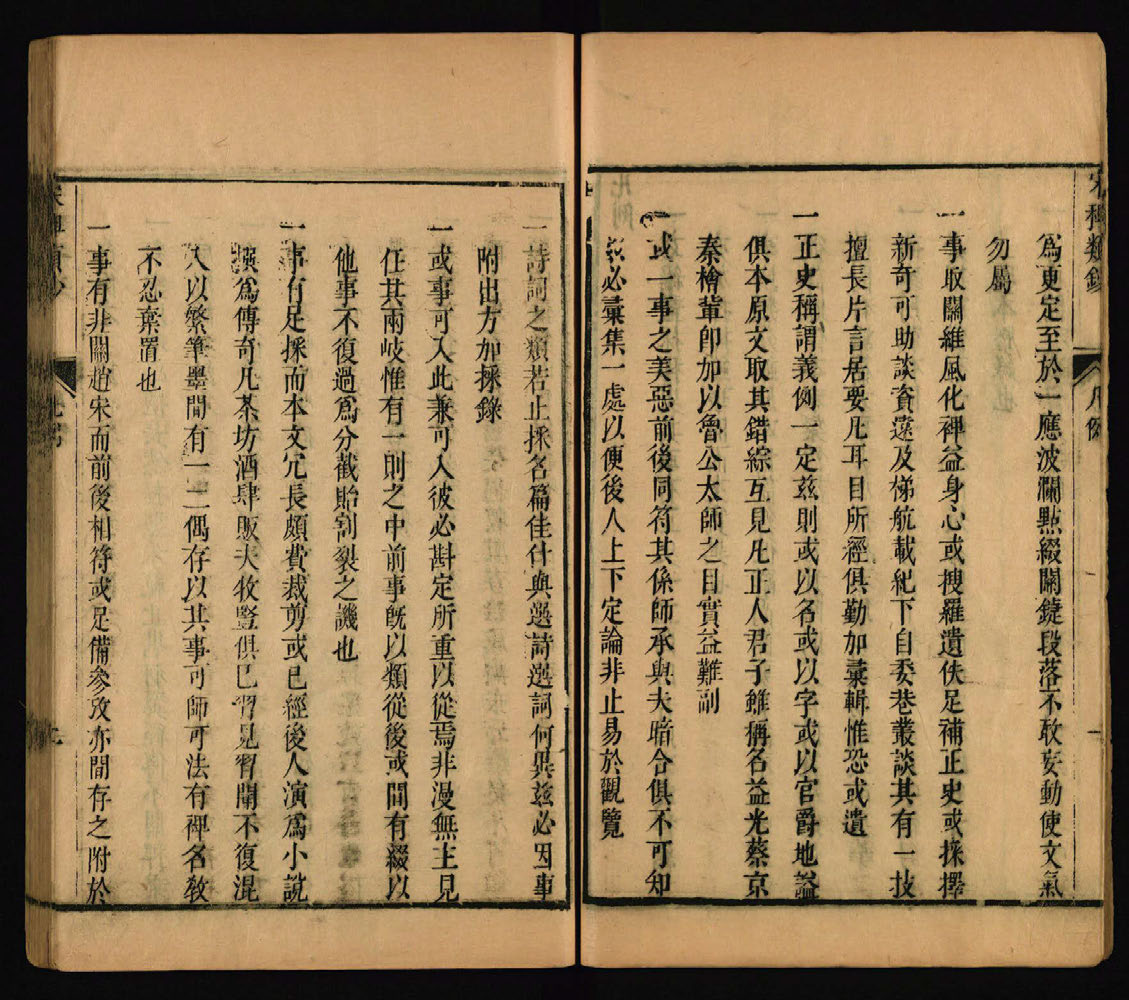 宋稗類鈔
凡例
一
為更定至於一應波瀾點綴關鍵段落不敢妄動使文氣
勿屬
一事取關維風化裨益身心或搜羅遺佚足補正史或採擇
新奇可助談資遠及梯航載紀下自委巷叢談其有一技
擅長片言居要凡耳目所經俱勤加彚輯惟恐或遺
一正史稱謂義例一定茲則或以名或以字或以官爵地謚
俱本原文取其錯綜互見凡正人君子雖稱名益光蔡京
秦檜輩卽加以魯公太師之目實益難副
一或一事之美惡前後同符其係師承與夫暗合俱不可知
茲必彚集一處以便後人上下定論非止易於觀覽
一詩詞之類若止採名篇佳什與選詩選詞何異茲必因事
附出方加採錄
一或事可入此兼可入彼必斟定所重以從焉非漫無主見
任其兩岐惟有一則之中前事旣以類從後或間有綴以
他事不復過爲分截貽割裂之譏也
一事有足採而本文冗長頗費裁剪或已經後人演爲小說
強爲傳奇凡茶坊酒肆販夫牧豎俱已習見習聞不復混
入以繁筆墨間有一二偶存以其事可師可法有裨名教
不忍棄置也
一事有非關趙宋而前後相符或足備參攷亦間存之附於
宋稗類鈔
凡例
二